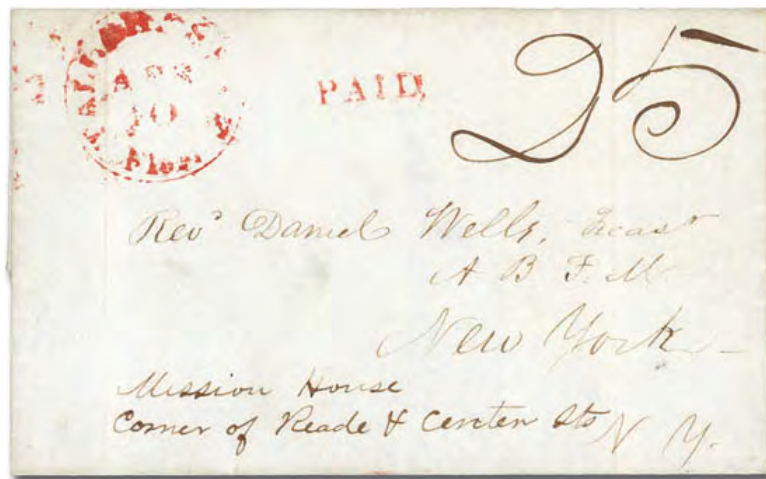 APR
10
Flor.
PAID,
25
Revd Daniel Wells, Treasr
A B F. M
New York
Mission House
Corner of Reade & Center Sts N Y.